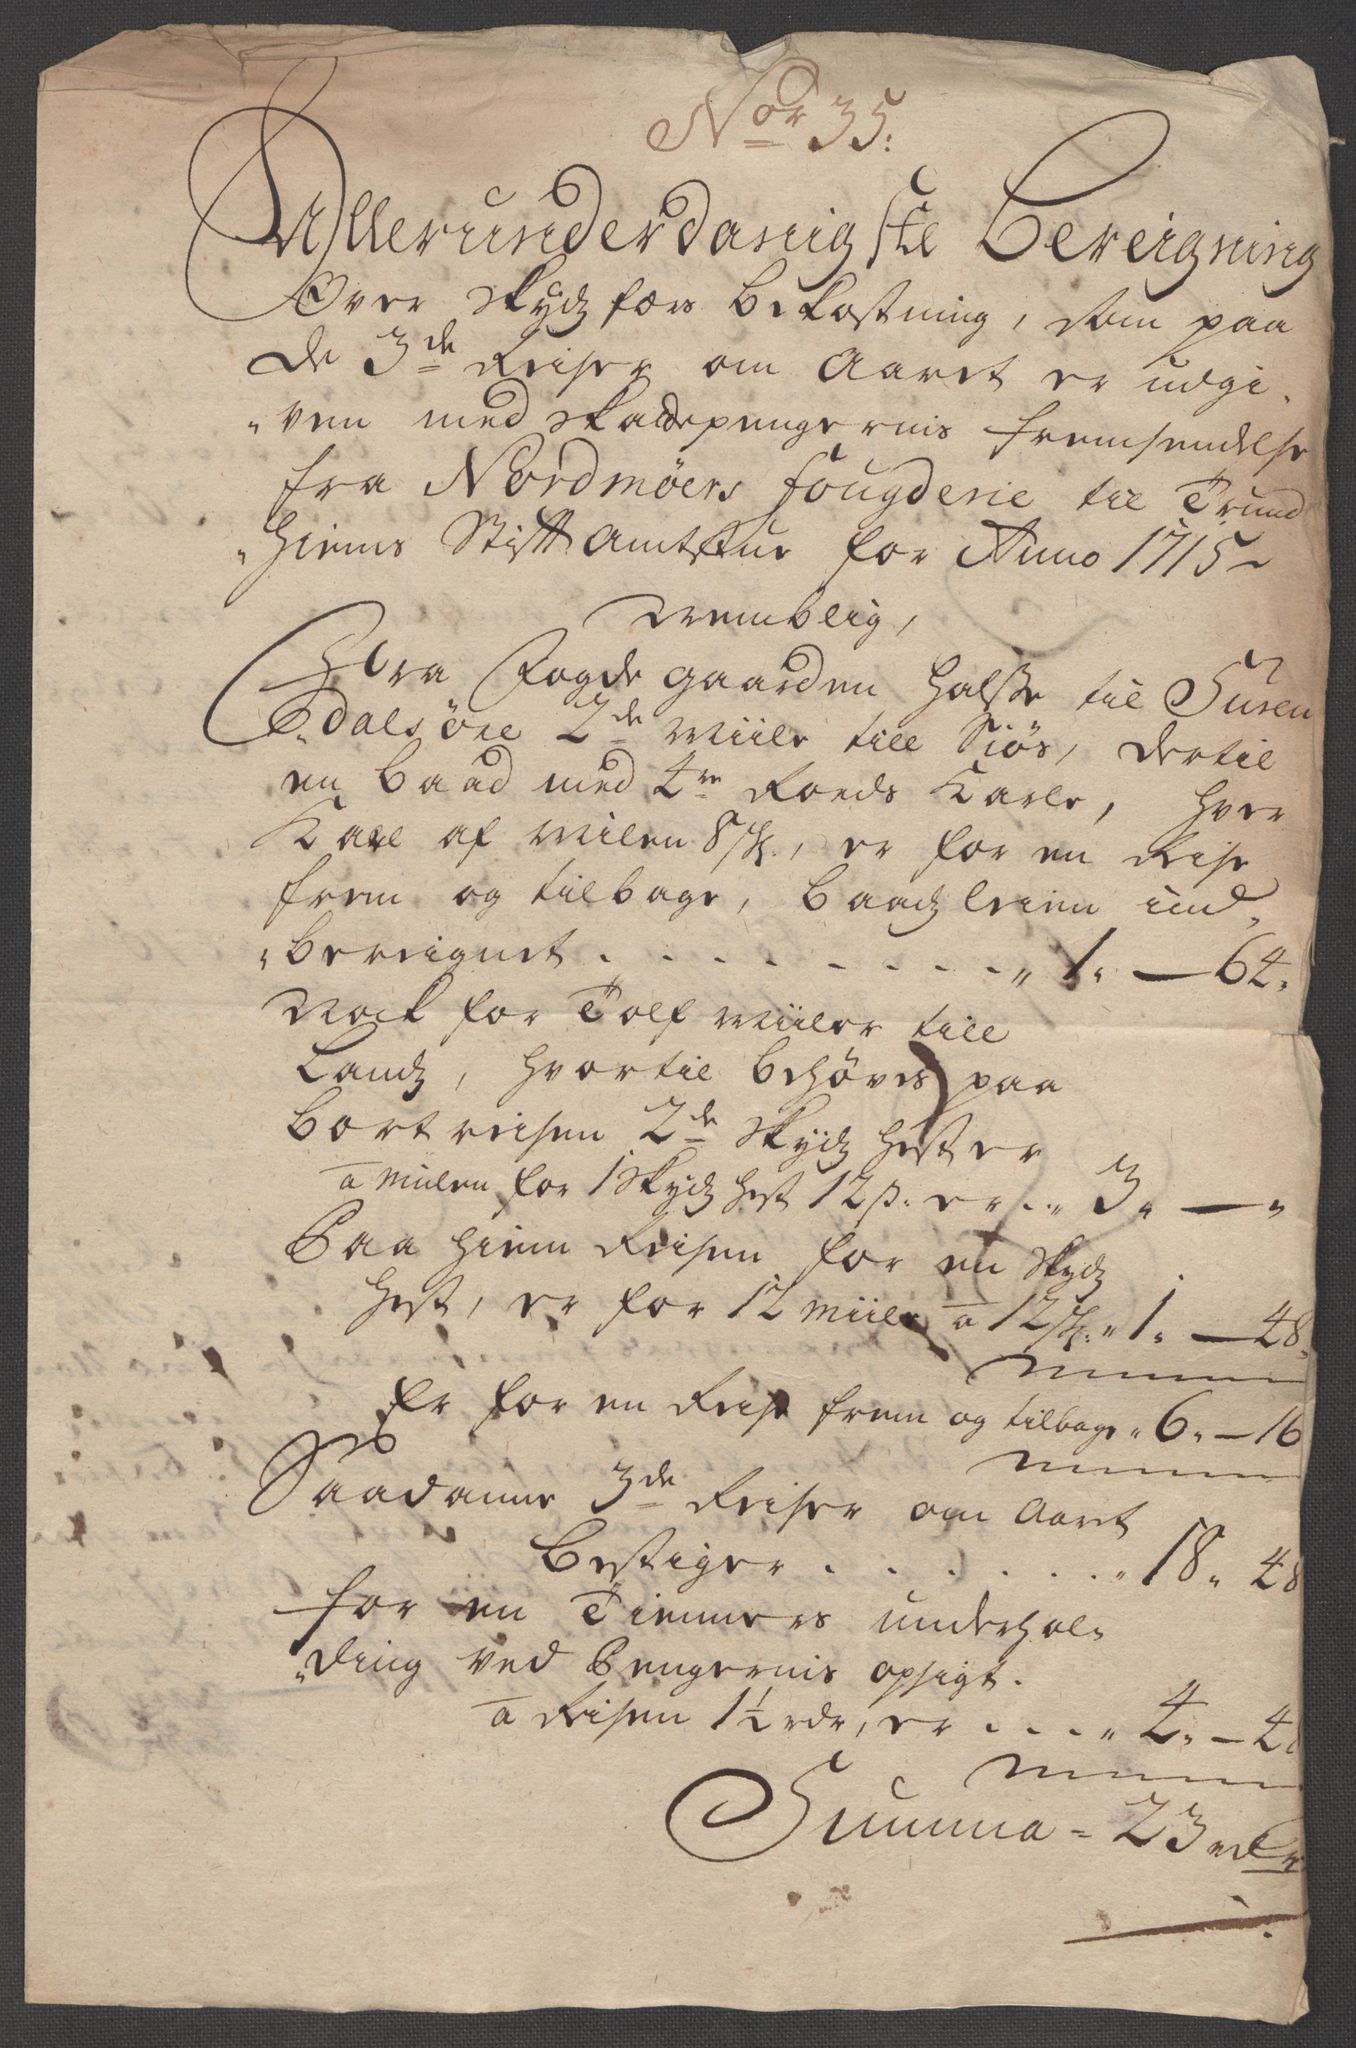 Nor 35.
Allerunderdanigste Bereigning
Over Skydz færs bekostning, som paa
de 3de Reiser om Aaret er udgi¬
"ven med Skattepengernis fremsendelse
fra Nordmøers Fougderie til Trund
"hiems Stifft Amtstue for Anno 1715
Nemblig,
Fra Fogde gaarden Halsse til Suren
"dalsøre 2de Miile till Siøs, dertil
en Baad med 4re Roers Karle, hver
Karl af Milen 8 sk., er for en Reise
frem og tilbage, Baadz leien ind¬
"bereignet . . . . . . . . . " 1. — 64.
Nock for Tolf Miiler till
Landz, hvortil behøves paa
bort reisen 2de Skydz hester
a Miilen for 1 Skydz hest 12 s. er . . " 3. — "
Paa hiem Reisen for en Skydz
hest, er for 12 Miiler a 12 sk. " 1. — 48.
Er for en Reise frem og tilbage " 6. — 16
Saadanne 3de Reiser om Aaret
bestiger . . . . . . " 18. 48
for en Tienners underhol¬
"ding ved Pengernis opsigt.
a Reisen 1½ rdr, er . . . . " 4. — 48
Summa = 23 rdr